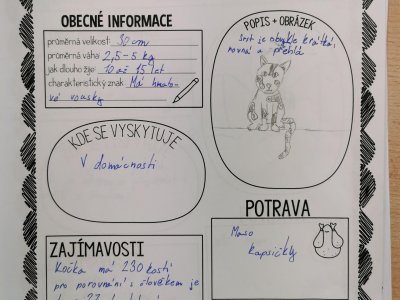 OBECNÉ INFORMACE
průměrná velikost: 30 cm
průměrná váha: 2,5-5 kg
jak dlouho žije: 10 až 15 let
charakteristický znak: Má hmato-
vé vousky
POPIS + OBRÁZEK
Srst je obykle krátká,
rovná a přehlá
KDE SE VYSKYTUJE
V domácnosti
POTRAVA
Maso
Kapsičky
ZAJÍMAVOSTI
Kočka má 230 kostí
pro porovnání s člověkem je